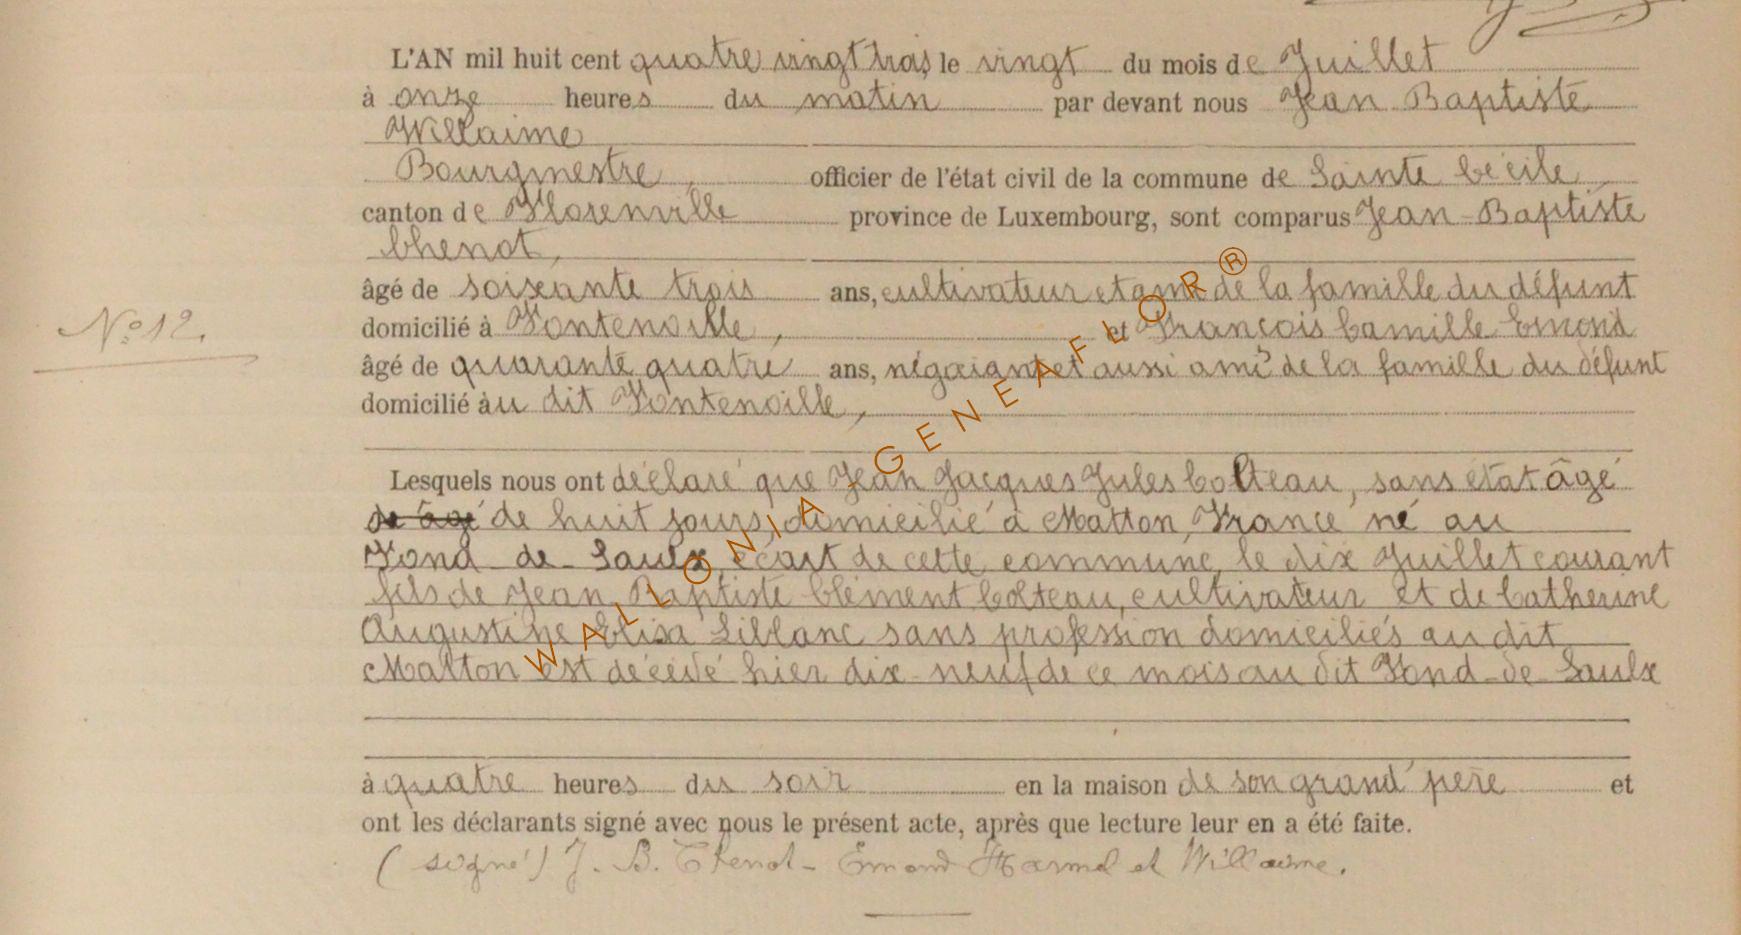 L'AN mil huit cent quatre vingt trois le vingt du mois de Juillet
à onze heures du matin par devant nous Jean Baptiste
Willaime
Bourgmestre, officier de l'état civil de la commune de Sainte Cécile
canton de Florenville province de Luxembourg, sont comparus Jean-Baptiste
Chenot,
âgé de soixante trois ans, cultivateur et ami de la famille du défunt
domicilié à Fontenoille, et François Camille Emond
N° 12.
âgé de quarante quatre ans, négociant et aussi ami de la famille du défunt
domicilié au dit Fontenoille,
Lesquels nous ont déclaré que Jean Jacques Jules Colteau, sans état âgé
de âgé de huit jours, domicilié à Matton, France né au
Fond de Saulx, écart de cette commune, le dix Juillet courant
fils de Jean Baptiste Clément Colteau, cultivateur et de Catherine
Augustine Elisa Lillanc sans profession domiciliés au dit
Matton est décédé hier dix-neuf de ce mois au dit Fond-de-Saulx
à quatre heures du soir en la maison de son grand père et
ont les déclarants signé avec nous le présent acte, après que lecture leur en a été faite.
(signé) J. B. Chenot - Emond Harmel et Willaime.
WALLONIA - GENEAFLOR®